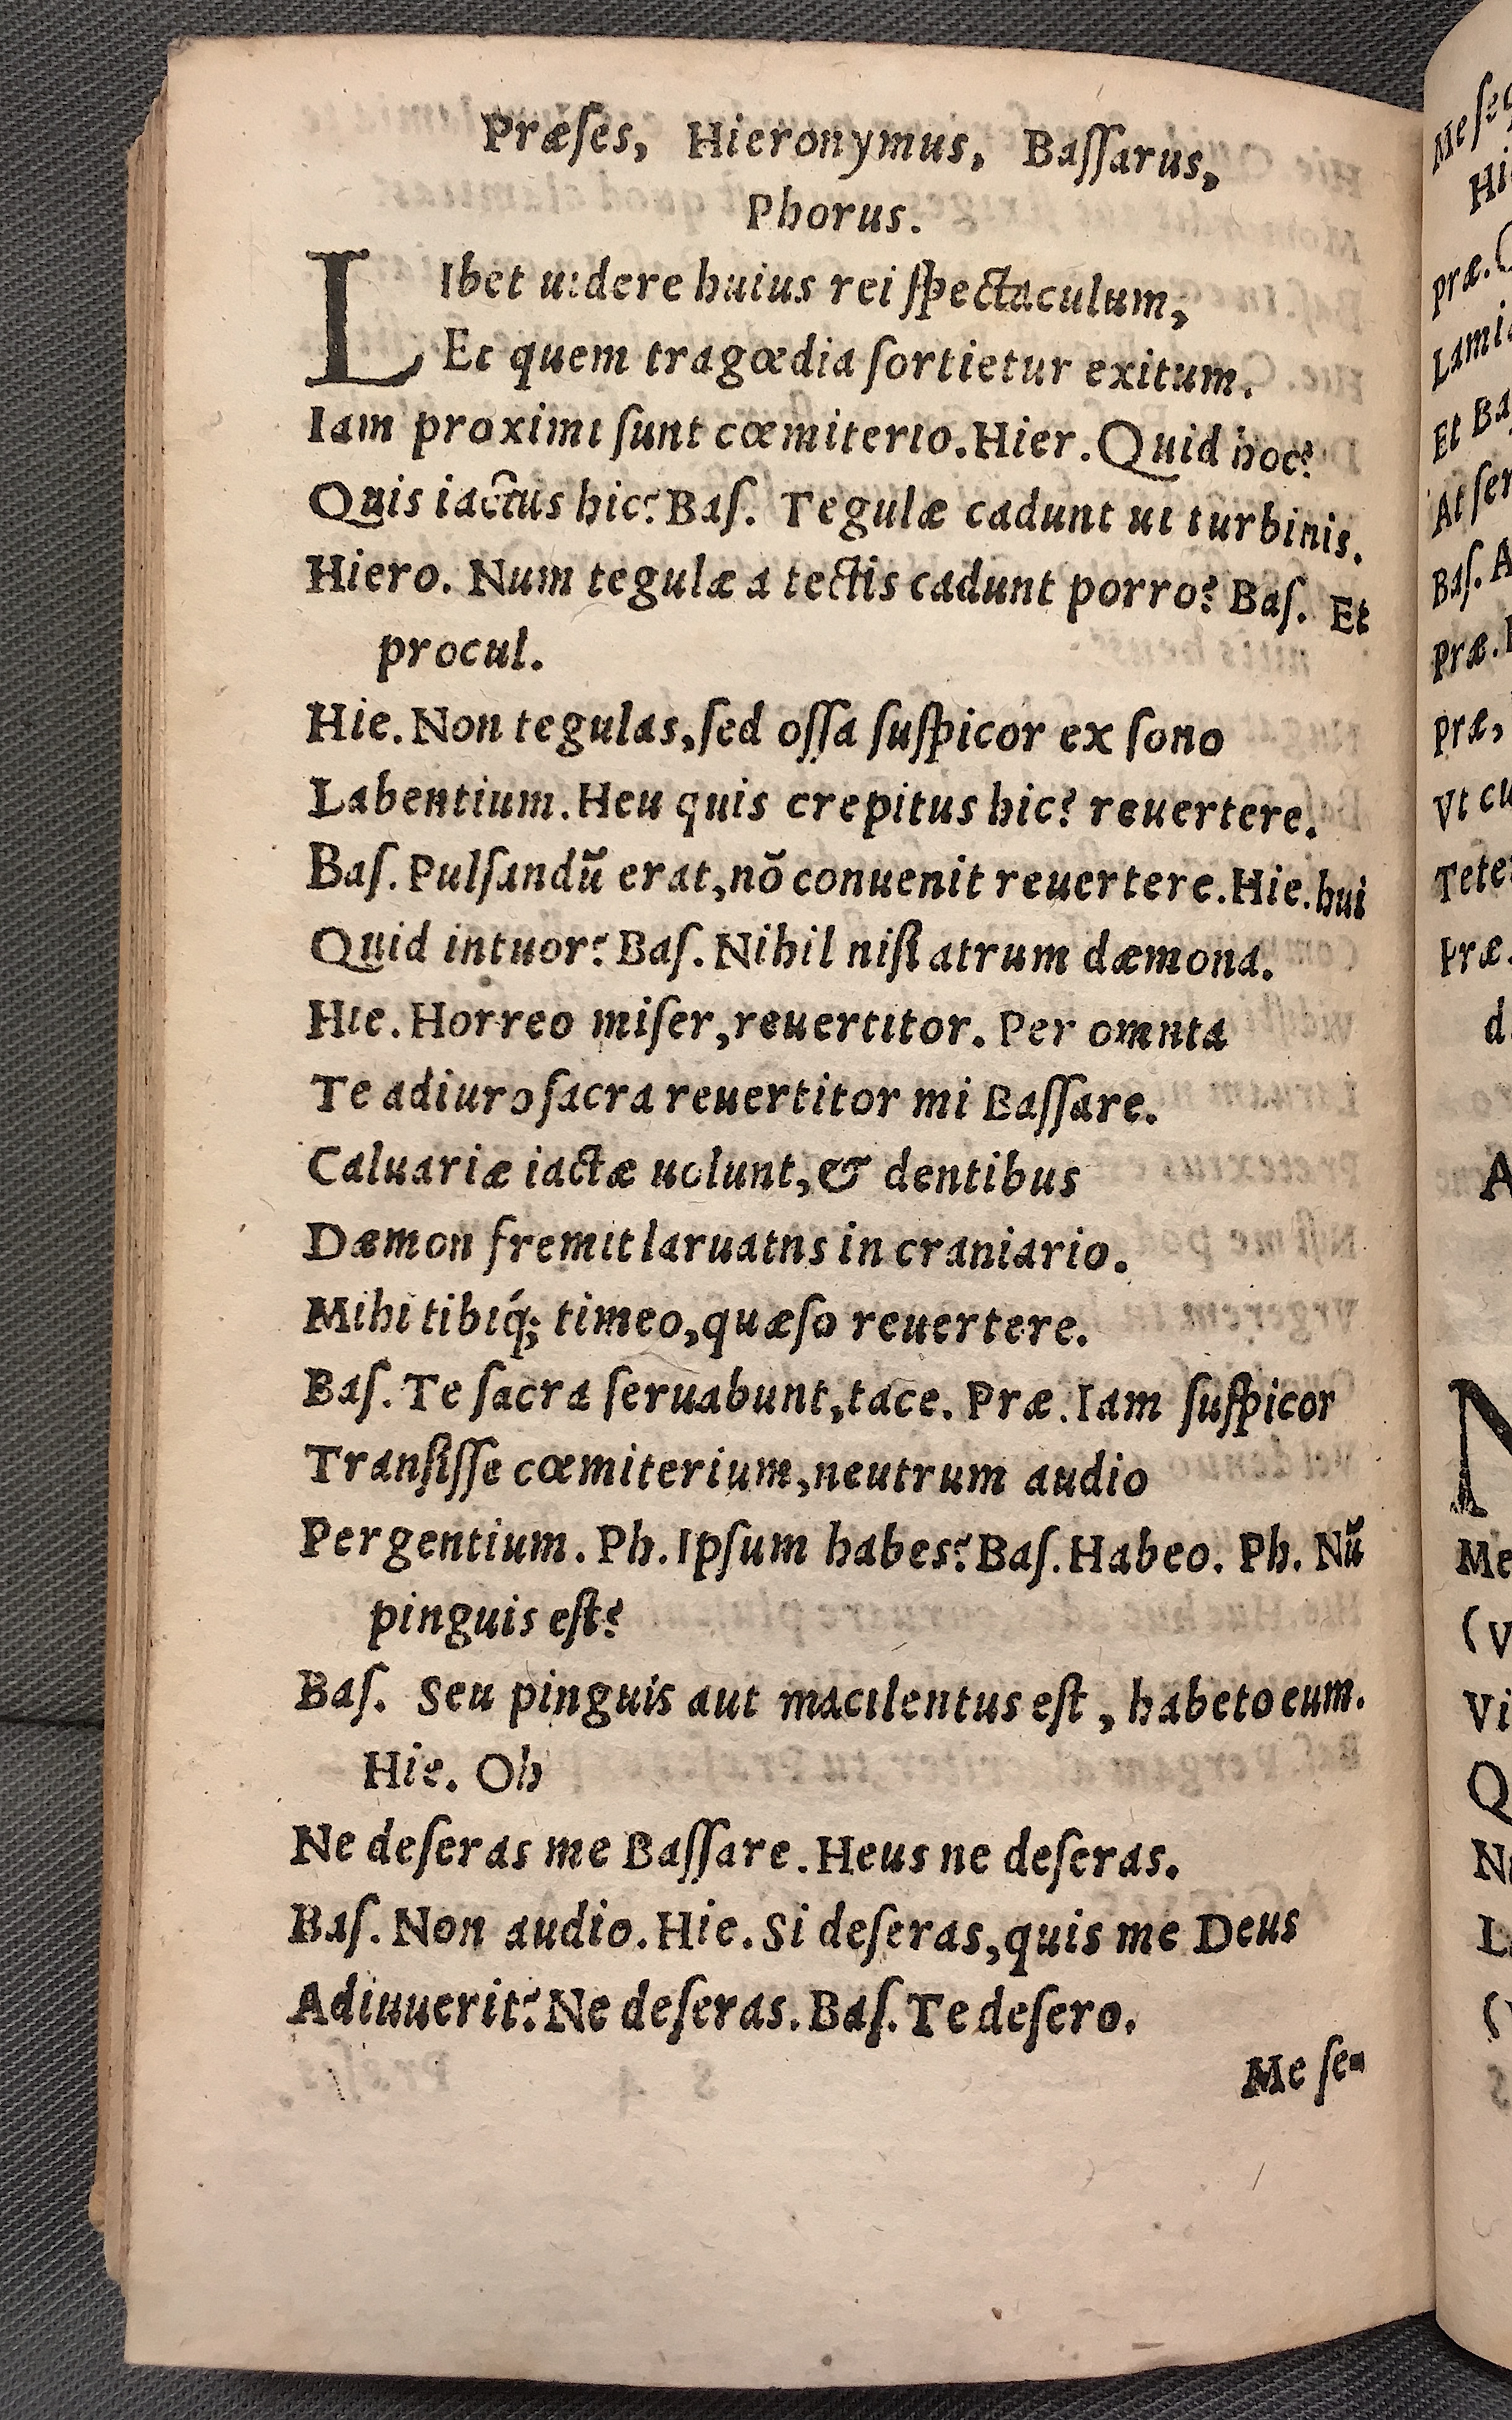 Præſes, Hieronymus, Baſſarus,
Phorus.
LIbet uidere huius rei ſpectaculum,
Et quem tragœdia ſortietur exitum.
Iam proximi ſunt cœmiterio. Hier. Quid hoc?
Quis iactus hic? Baſ. Tegulæ cadunt ut turbinis.
Hiero. Num tegulæ a tectis cadunt porro? Baſ. Et
procul.
Hie. Non tegulas, ſed oſſa ſuſpicor ex ſono
Labentium. Heu quis crepitus hic? reuertere.
Baſ. Pulſandũ erat, nõ conuenit reuertere. Hie. hui
Quid intuor? Baſ. Nihil niſi atrum dæmona.
Hie. Horreo miſer, reuertitor. Per omnia
Te adiuro ſacra reuertitor mi Baſſare.
Caluariæ iactæ uolunt, & dentibus
Dæmon fremit laruatns in craniario.
Mihi tibiq́; timeo, quæſo reuertere.
Baſ. Te ſacra ſeruabunt, tace. Præ. Iam ſuſpicor
Tranſiſſe cœmiterium, neutrum audio
Pergentium. Ph. Ipſum habes? Baſ. Habeo. Ph. Nũ
pinguis eſt?
Baſ. Seu pinguis aut macilentus eſt, habeto eum.
Hie. Oh
Ne deſeras me Baſſare. Heus ne deſeras.
Baſ. Non audio. Hie. Si deſeras, quis me Deus
Adiuuerit? Ne deſeras. Baſ. Te deſero.
Me ſe-